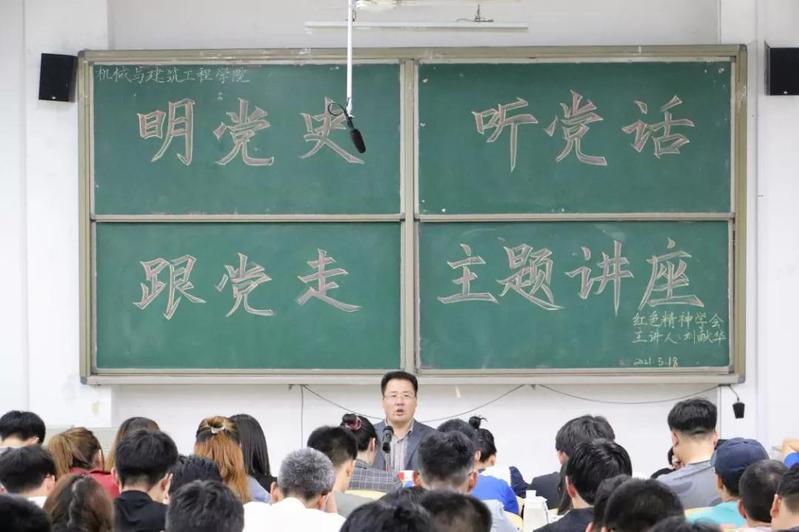 机械与建筑工程学院
明党史
听党话
跟党走
主题讲座
红色精神学会
主讲人:刘献华
2021.5.18